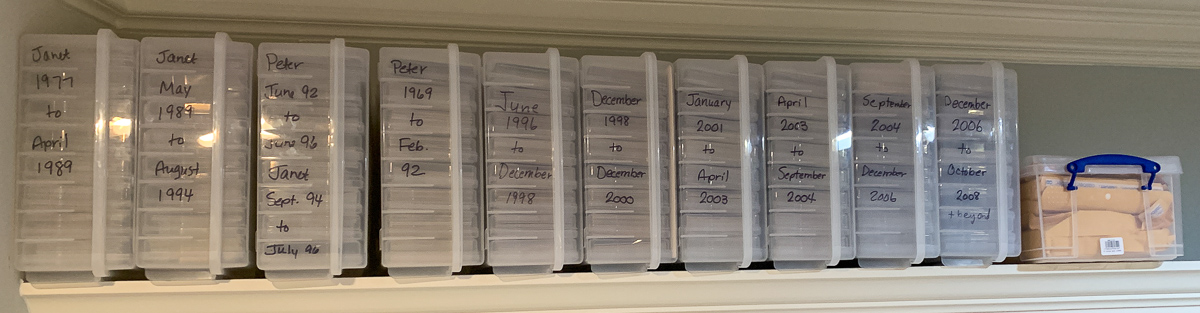 Janet
1977
to
April
1989
Janet
May
1989
to
August
1994
Peter
June 92
to
June 96
Janet
Sept. 94
to
July 96
Peter
1969
to
Feb.
92
June
1996
to
December
1998
December
1998
to
December
2000
January
2001
to
April
2003
April
2003
to
September
2004
September
2004
to
December
2006
December
2006
to
October
2008
+ beyond